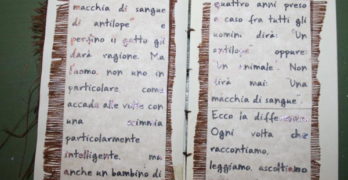 macchia di sangue
di antilope e
perfino il gatto gli
darà ragione. Ma
l'uomo, non uno in
particolare, come
accade alle volte con
una scimmia
particolarmente
intelligente, ma
anche un bambino di
quattro anni preso
a caso fra tutti gli
uomini dirà: Un
antilope oppure:
Un animale. Non
dirà mai: Una
macchia di sangue.
Ecco la differenza.
Ogni volta che
raccontiamo,
leggiamo, ascoltiamo